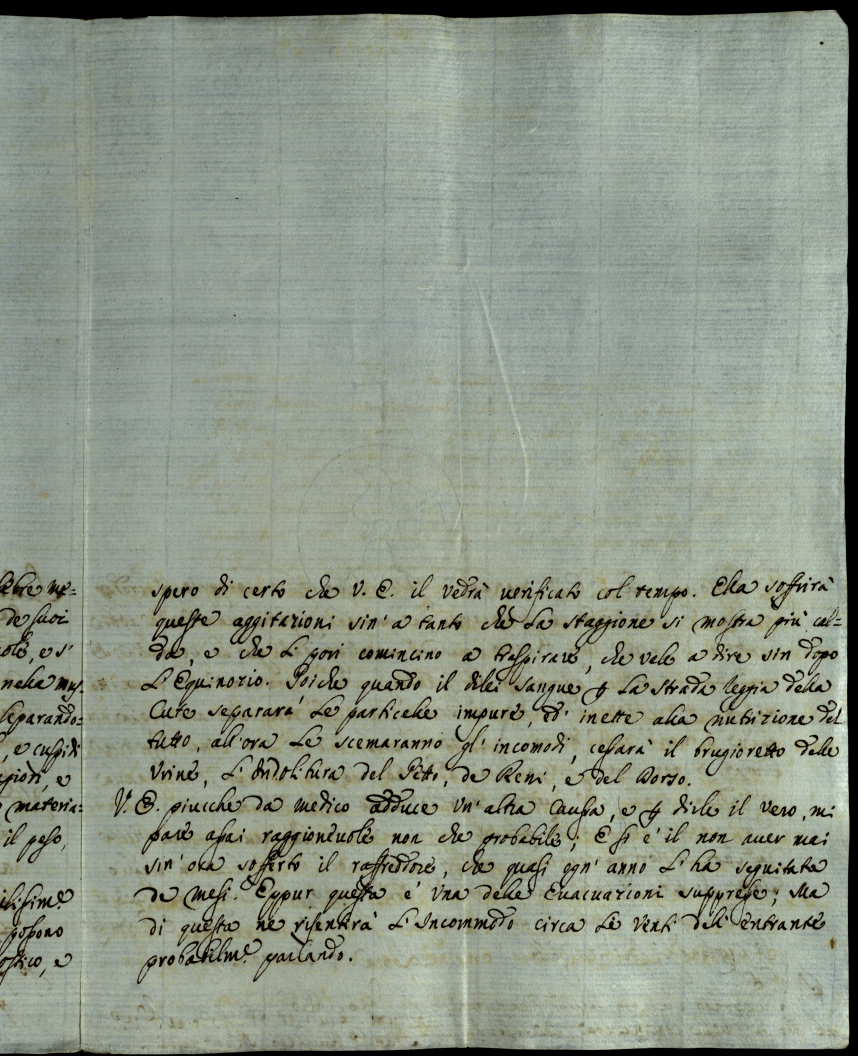 lebre me=
de suoi
, e s'
nella mus
separando=
, e cuspidi
, e
materia=
il peso,
possono
, e
spero di certo che V. E. il vedrà verificato col tempo. Ella soffrirà
queste aggitazioni sin' a tanto che La staggione si mostra più cal=
da, e che L pori comincino a traspirare, che vale a dire sin dopo
L'Equinozio. Poiche quando il dilei sangue p La strada leggia della
Cute separarà Le particelle impure, ed' inette alla nutrizione del
tutto, all'ora Le scemaranno gl' incomodi, cessarà il brugioretto delle
Urine, L'Indolitura del Petto, de Reni, e del Dorso.
V. E. piucche da medico adduce Un' altra Causa, e p dirle il vero, mi
pare assai raggionevole non che probabile; E si è il non aver mai
sin' ora sofferto il raffreddore, che quasi ogn' anno L'ha seguitata
de mesi. Eppur questa è Una delle Evacuazioni suppresse; Ma
di questa ne risentirà L'Incommodo circa Le Venti dell' entrante
probabilm.e parlando.